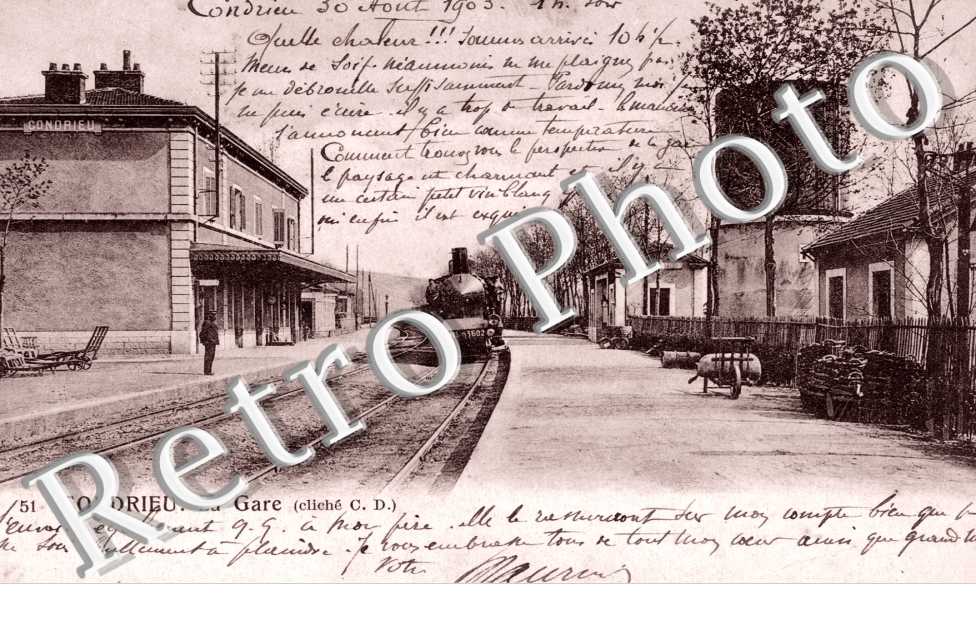 Condrieu 30 Août 1903. 1h. soir
Quelle chaleur!!! Sommes arrivés 10h ½
Mieurs de Soif. Néanmoins ne me plaignez pas
je me débrouille suffisamment. Pardonnez moi si
je puis écrire. il y a trop de travail. 
s'annoncent bien comme température
CONDRIEU
Comment trouvez vous la perspective de la gare
le paysage est charmant et il y a
un certain petit vin blanc
qui enfin il est exquis
Retro Photo
51 CONDRIEU. La Gare (cliché C. D.)
J'envoie également à mon père. elle le rassureront sur mon compte bien que
ne sois nullement à plaindre. Je vous embrasse tous de tout mon cœur ainsi que grand
Votre Maurice